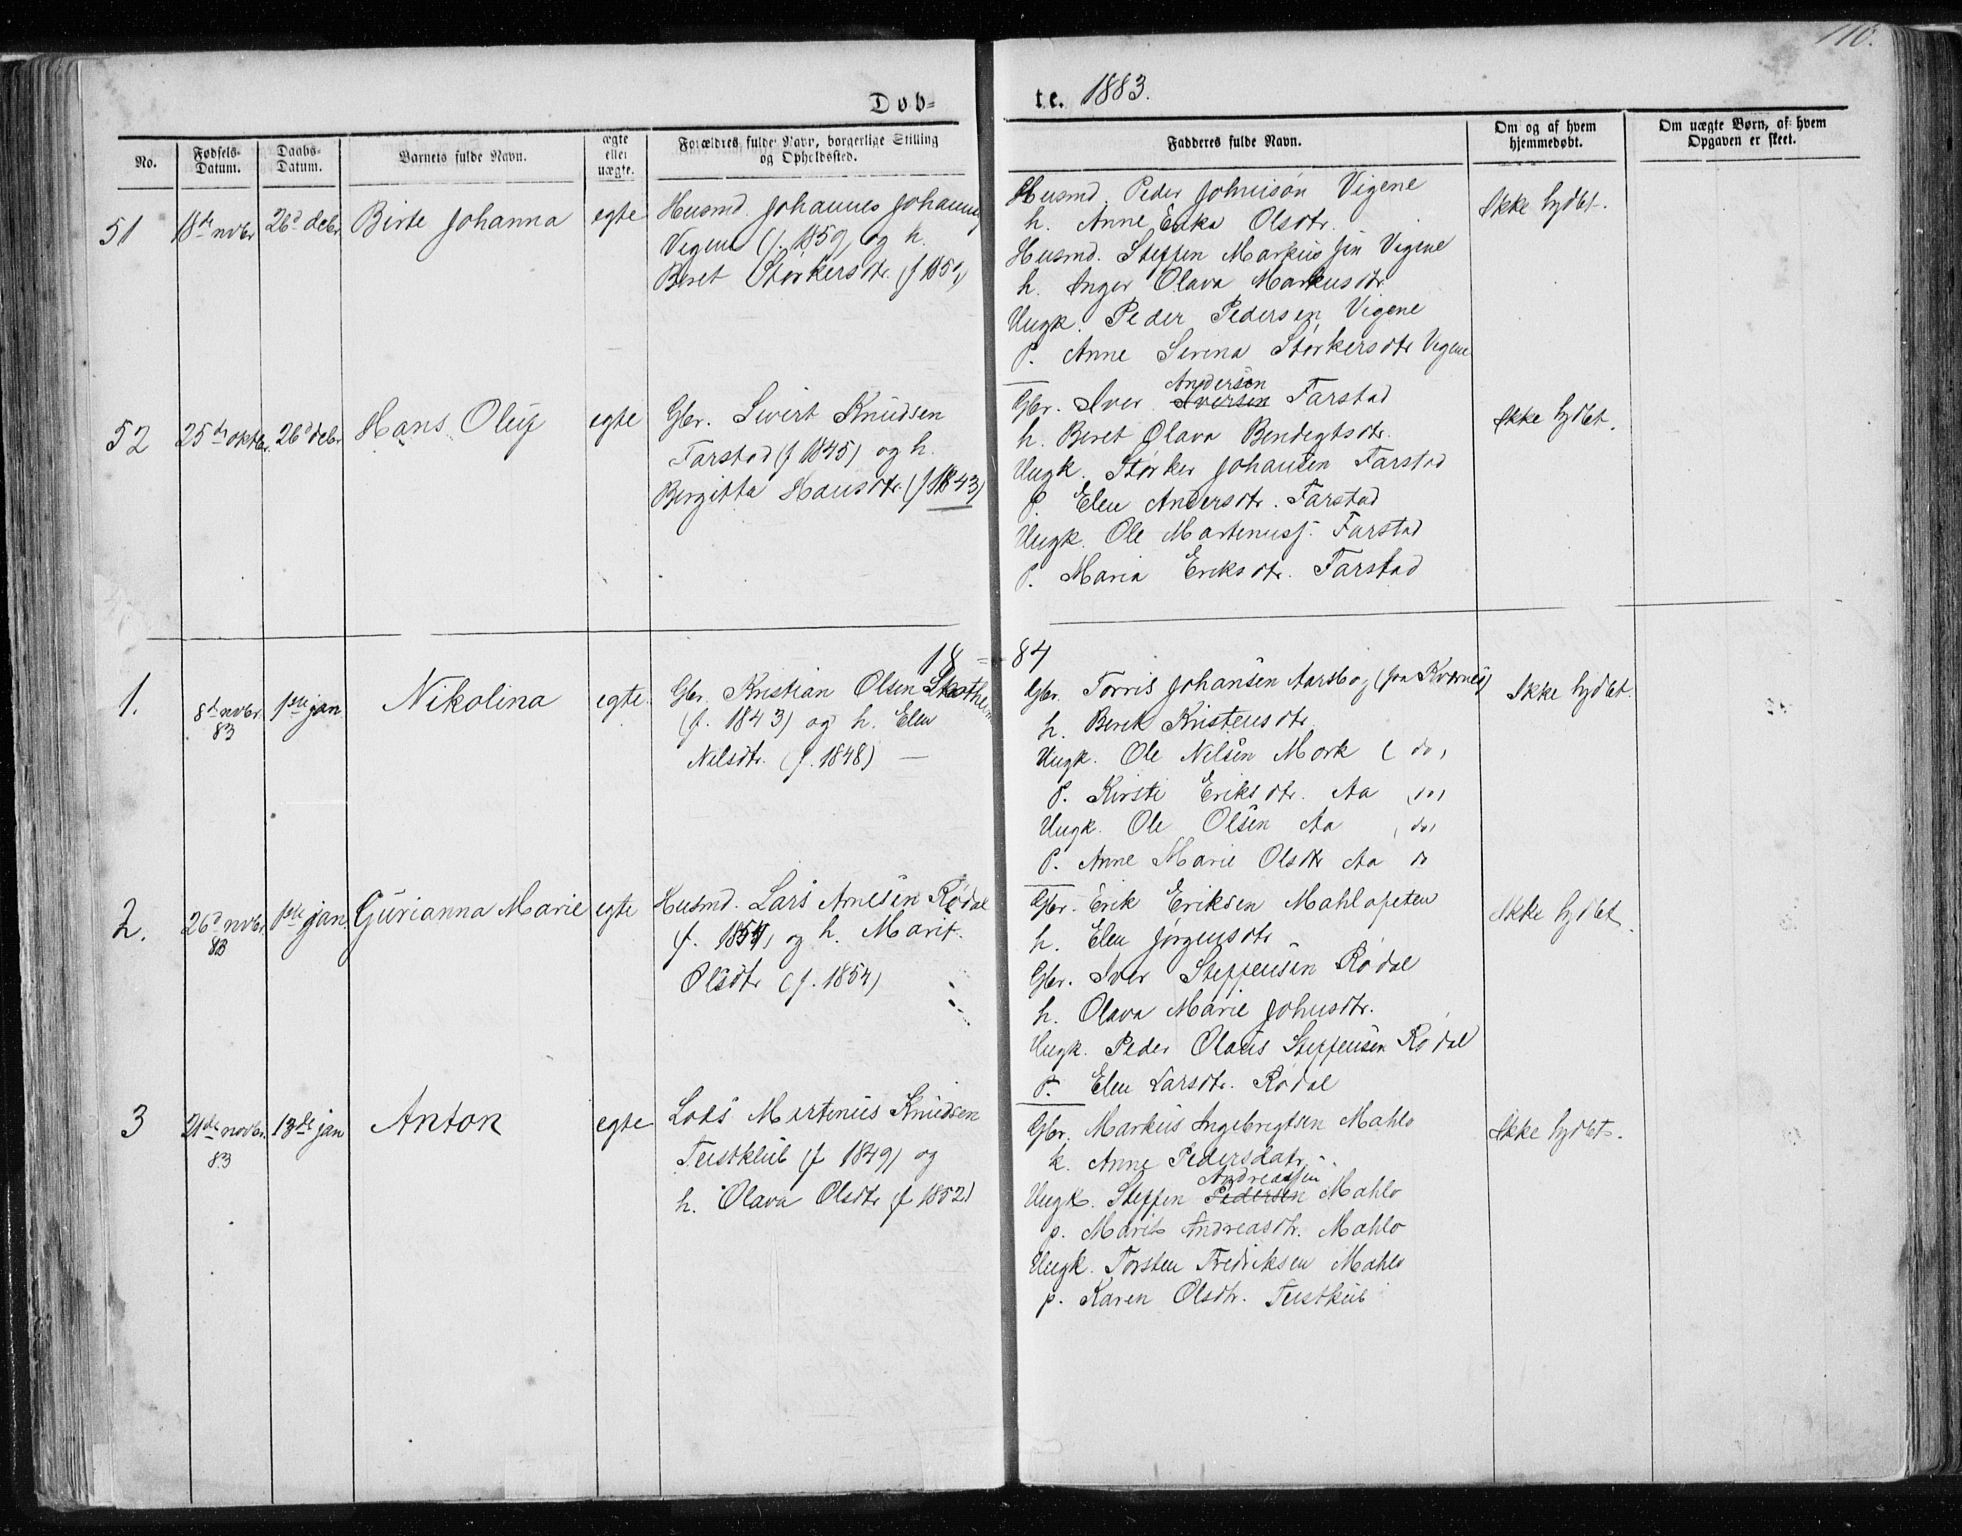 110.
Døb-
te. 1883.
No.
Fødsels-Datum.
Daabs-Datum.
Barnets fulde Navn.
ægte eller uægte.
Forældres fulde Navn, borgerlige Stilling og Opholdssted.
Fadderes fulde Navn.
Om og af hvem hjemmedøbt.
Om uægte Børn, af hvem Opgaven er skeet.
51
18de novbr
26d debr
Birte Johanna
egte
Husmd. Johannes Johannes
Vigene (f. 1859) og h.
Beret Størkersdtr. (f 185
Husmd. Peder Johnisøn Vigene
h. Anne Erika Olsdtr.
Husmd. Steffen Markusjin Vigene
h. Inger Olava Markusdtr
Ungk. Peder Pedersen Vigene
P. Anne Serina Størkersdtr Vigene
Ikke hjdbt.
52
25de oktbr.
26d debr
Hans Oluf
egte
Gbr. Sivert Knudsen
Farstad (f 1845) og h.
Bergitta Hansdtr. (f 1843)
Andersen
Gbr. Iver Iversen Farstad
h. Beret Olava Bendigtsdtr.
Ungk. Størker Johansen Farstad
P. Elen Andersdtr. Farstad
Ungk. Ole Martinusf. Farstad
P. Maria Eriksdtr. Farstad
Ikke hjdbt.
18 = 84
1.
8d novbr. 83
1ste jan
Nikolina
egte.
Gbr. Kristian Olsen Skotheim
(f. 1843) og h. Elen
Nilsdtr. (f. 1848) —
Gbr. Torris Johansen Aarsbog (fra Kvernes)
h. Berit Kristensdtr.
Ungk. Ole Nilsen Mork (do)
P. Kirsti Eriksdtr. Aa (do)
Ungk. Ole Olsen Aa (do)
P. Anne Marie Olsdtr Aa do
Ikke hjdbt.
2.
26d novbr. 83
1ste jan.
Gurianna Marie
egte
Husmd. Lars Arnesen Rødal
(f. 1857) og h. Marit
Olsdtr (f. 1854)
Gbr. Erik Eriksen Mahlofeten
h. Elen Jørgensdtr
Gbr. Iver Steffensen Rødal
h. Olava Marie Johnsdtr.
Ungk. Peder Olaus Steffensen Rødal
P. Elen Larsdtr. Rødal
Ikke hjdbt.
3
21de novbr. 83
13de jan
Anton
egte
Lods Martinus Knudsen
Tustklub (f 1849) og
h. Olava Olsdtr (f 1852)
Gbr. Markus Ingebrigtsen Mahlo
k. Anne Pedersdatr.
Andreasjen
Ungk. Steffen Pedersen Mahlo
p. Marit Andreasdtr. Mahlo
Ungk. Torsten Fredriksen Mahlo
p. Karen Olsdtr. Tustklub
Ikke hjdbt.